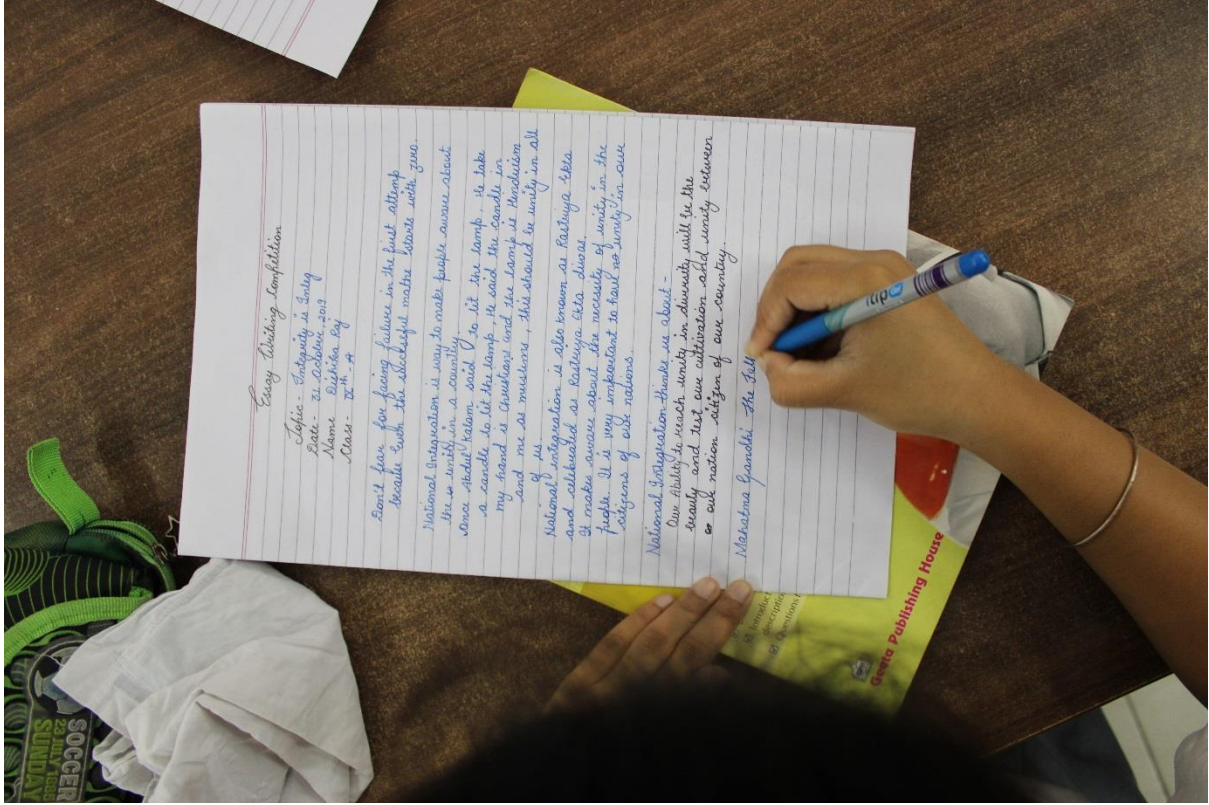 Essay Writing Competition
Topic - Integrity is Integ
Date - 31 October, 2019
Name Dishika Raj
Class - IXth - A
Don't fear for facing failure in the first attemp
because even the successful maths starts with zero.
National Integration is way to make people aware about
the unity in a country
Once Abdul Kalam said I to lit the lamp. He take
a candle to lit the lamp, He said the candle in
my hand is Christians and the lamp is Hinduism
and me as muslims, this should be unity in all
of us.
National integration is also known as Rastriya Ekta
and celebrated as Rastriya ekta divas.
It makes aware about the necessity of unity in the
people. It is very important to have unity in our
citizens of our nations.
National Integration thinks us about -
Our Ability to reach unity in diversity will be the
beauty and test our cultivation and unity between
our nation citizen of our country.
Mahatma Gandhi The Fat
dio
Introduc
descriptio
Questions
Geeta Publishing House
SOCCER
23 JULY 1885
SUNDAY